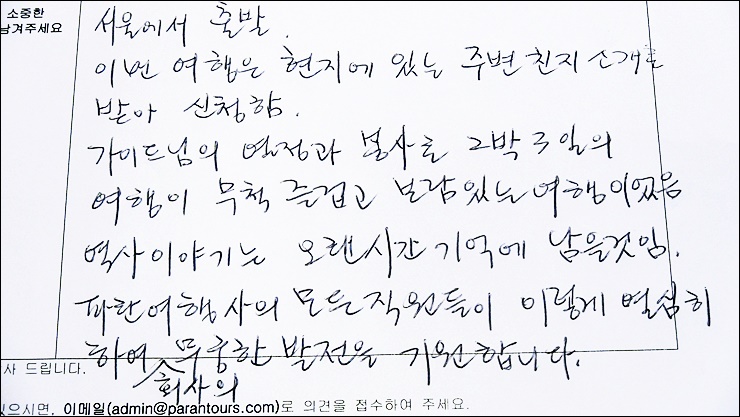 소중한
남겨주세요
서울에서 출발.
이번 여행은 현지에 있는 주변 친지 소개를
받아 신청함.
가이드님의 열정과 봉사로 2박 3일의
여행이 무척 즐겁고 보람있는 여행이었음
역사이야기는 오랜시간 기억에 남을것임.
파란여행사의 모든직원들이 이렇게 열심히
하여 무궁한 발전을 기원합니다.
회사의
사 드립니다.
있으시면, 이메일(admin@parantours.com)로 의견을 접수하여 주세요.